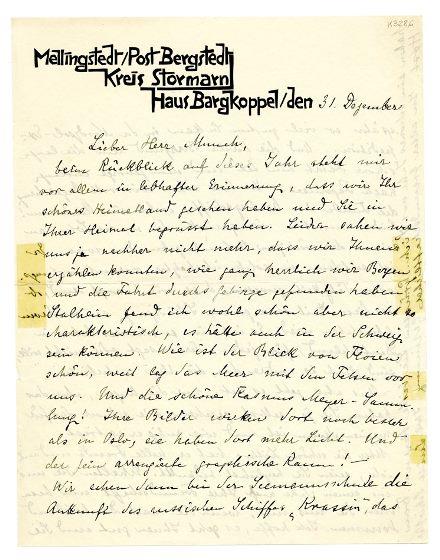 K3286
Mellingstedt/Post Bergstedt
Kreis Stormarn
Haus Bargkoppel/den 31. Dezember
Lieber Herr Munch,
beim Rückblick auf dieses Jahr steht mir
vor allem in lebhafter Erinnerung, dass wir Ihr
schönes Heimatland gesehen haben und Sie in
Ihrer Heimat begrüsst haben. Leider sahen wir
uns ja nachher nicht mehr, dass wir Ihnen
erzählen konnten, wie ganz herrlich wir Bergen
und die Fahrt durchs Gebirge gefunden haben
Stalheim fand ich wohl schön aber nicht so
charakteristisch, es hätte auch in der Schweiz
sein können. Wie ist der Blick von Floien
schön, weit lag das Meer mit den Felsen vor
uns. Und die schöne Rasmus Meyer-Samm-
lung! Ihre Bilder wirken dort noch besser
als in Oslo, sie haben dort mehr Licht. Und
der fein arrangierte graphische Raum! –
Wir sahen dann bei der Seemannsschule die
Ankunft des russischen Schiffes „Krassin", das